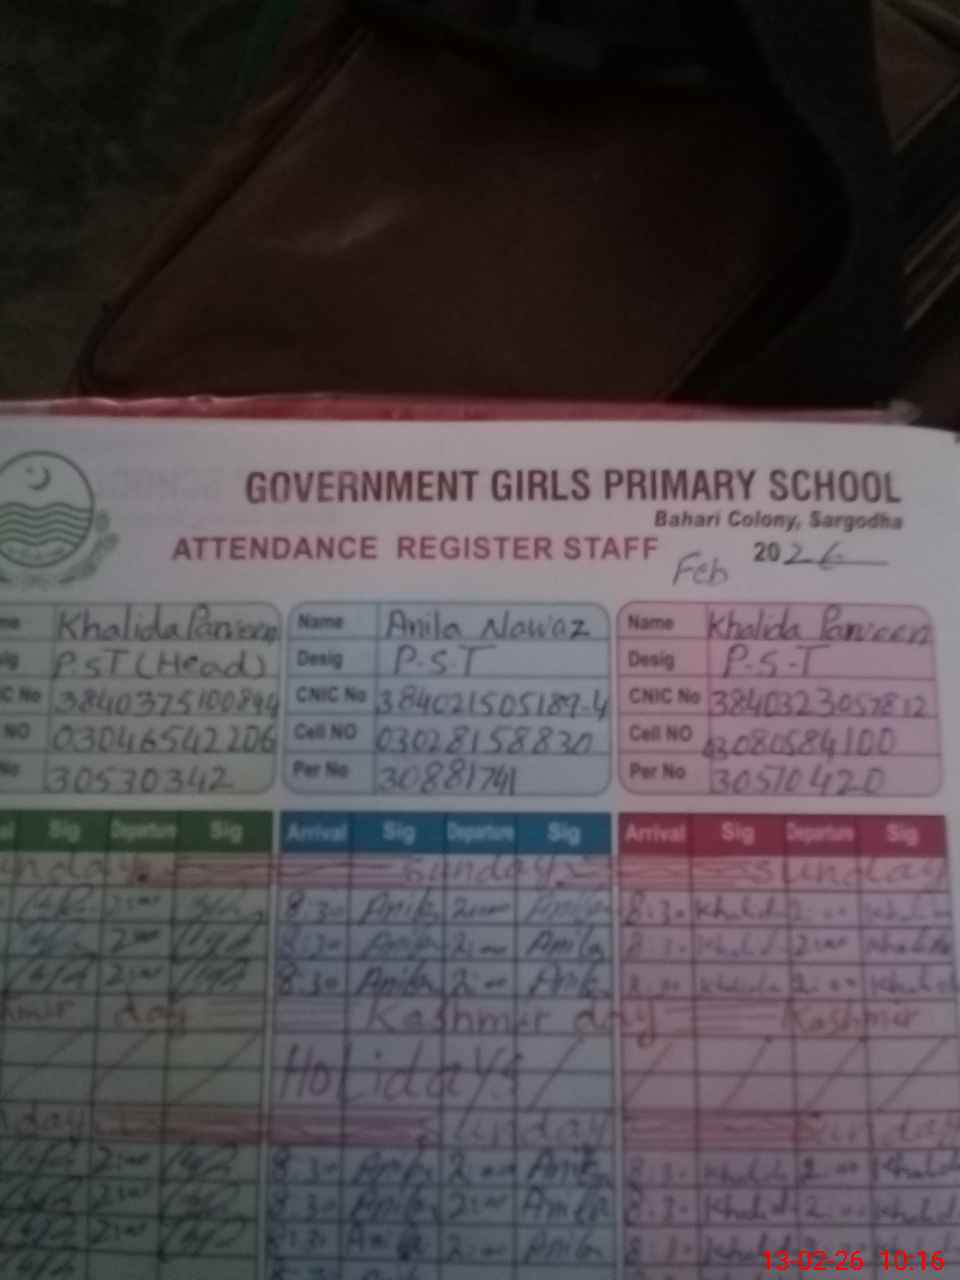 GOVERNMENT GIRLS PRIMARY SCHOOL
Bahari Colony, Sargodha
ATTENDANCE REGISTER STAFF Feb 2026
me Khalida Parveen Name Anila Nawaz Name Khalida Parveen
sig P.ST (Head) Desig P.S.T Desig P.S.T
IC No 3840375100894 CNIC No 384021505189-4 CNIC No 3840323057812
NO 03046542206 Cell NO 03028158830 Cell NO 03080584100
No 30530342 Per No 30881741 Per No 30510420
al Sig Departure Sig Arrival Sig Departure Sig Arrival Sig Departure Sig
unday Sunday Sunday
2:00 8:30 Anila 2:00 Anila 8:30 Khalida 2:00 Khalida
2:00 8:30 Anila 2:00 Anila 8:30 Khalida 2:00 Khalida
2:00 8:30 Anila 2:00 Anila 8:30 Khalida 2:00 Khalida
hmir day Kashmir day Kashmir
Holidays
nday Sunday Sunday
2:00 8:30 Anila 2:00 Anila 8:30 Khalida 2:00 Khalida
2:00 8:30 Anila 2:00 Anila 8:30 Khalida 2:00 Khalida
2:00 8:30 Anila 2:00 Anila 8:30 Khalida 2:00 Khalida
13-02-26 10:16